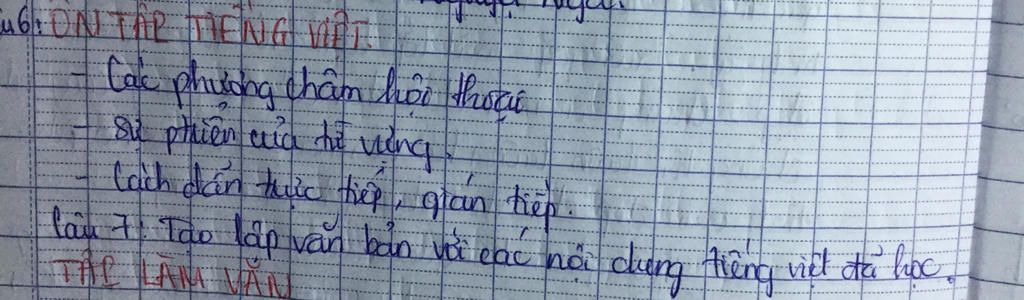 u6: ÔN TẬP TIẾNG VIỆT.
- Các phương châm hội thoại
- Sự phiên của từ vựng.
- Cách dẫn trực tiếp, gián tiếp.
Câu 7: Tạo lập văn bản với các nội dung tiếng việt đã học.
TẬP LÀM VĂN